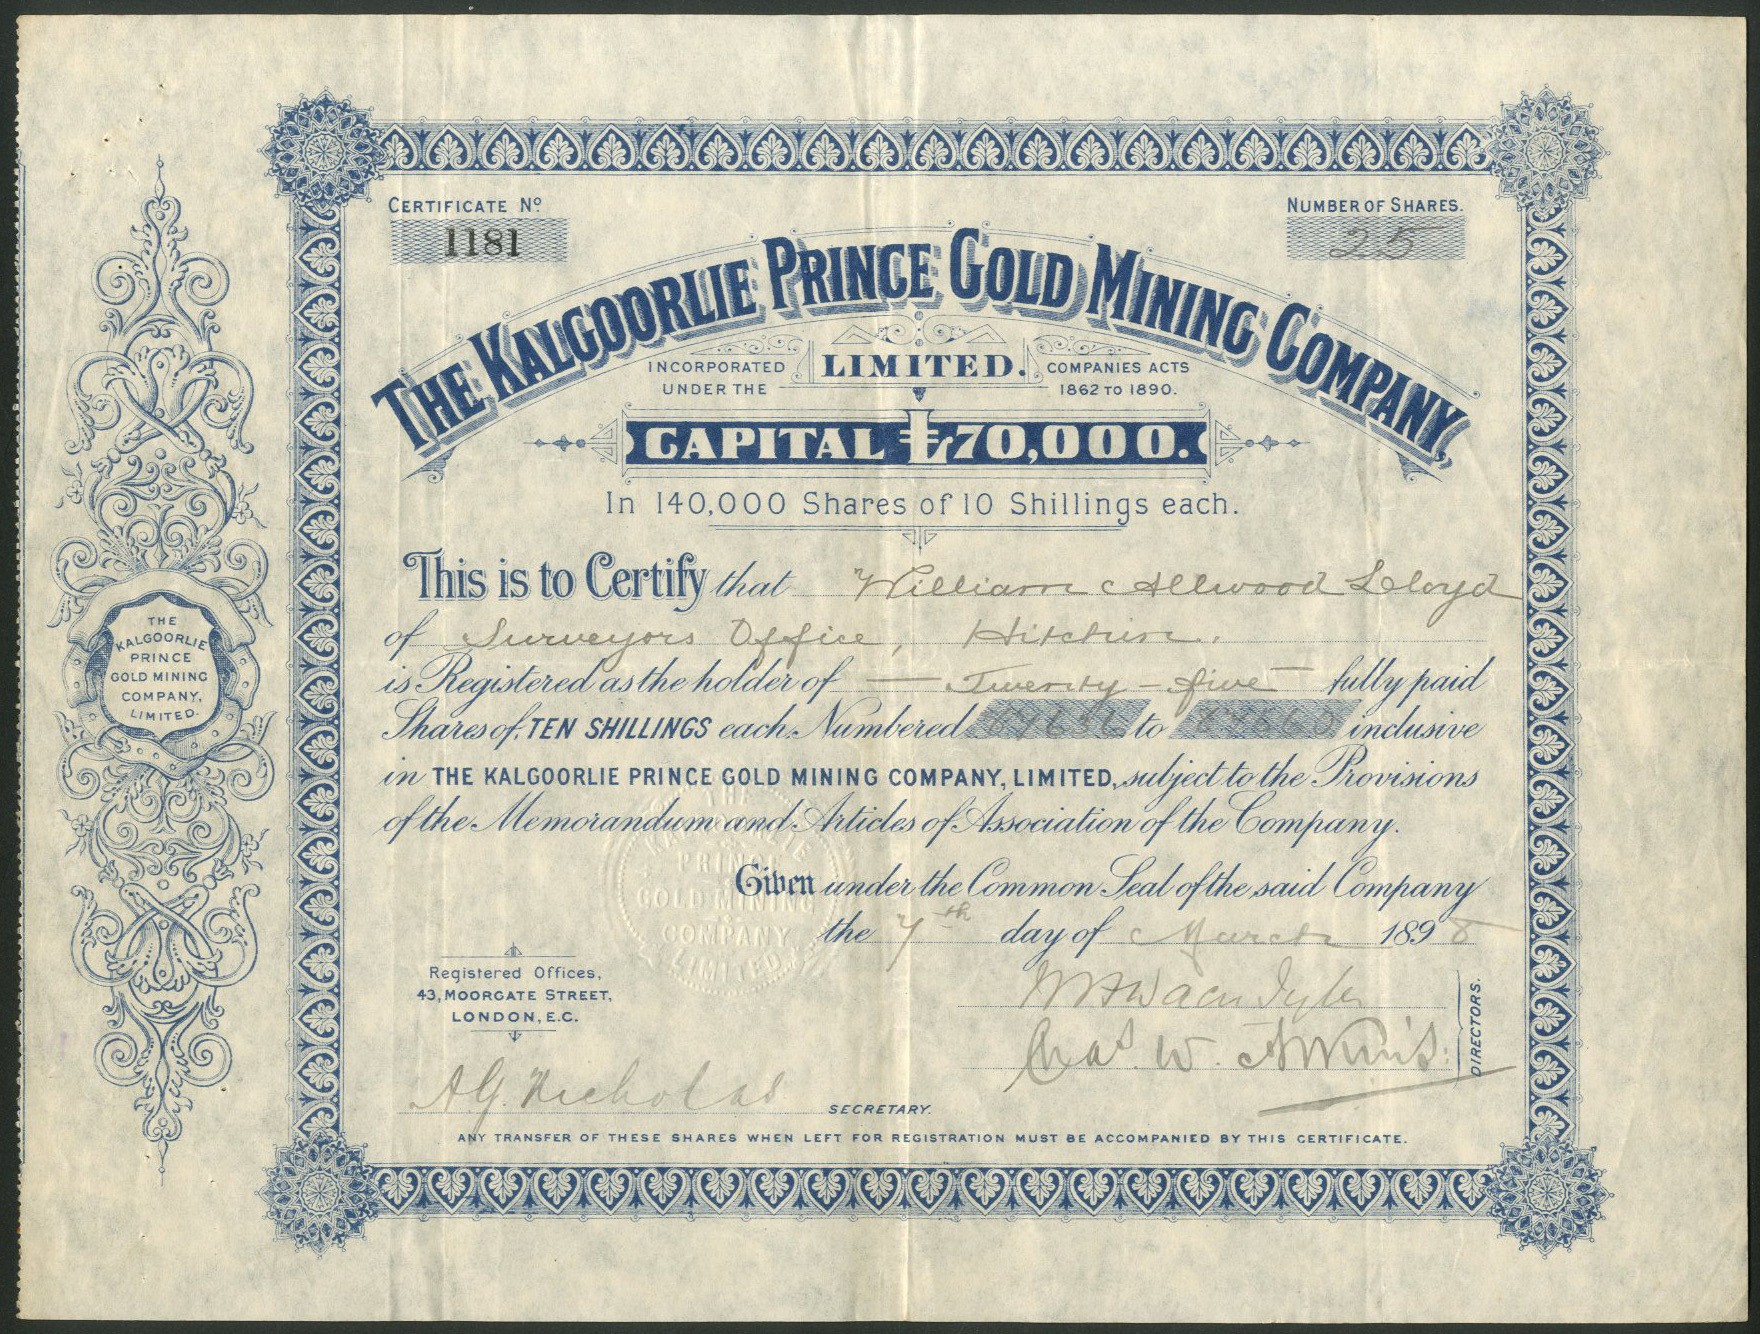 CERTIFICATE Nº
1181
NUMBER OF SHARES.
25
THE KALGOORLIE PRINCE GOLD MINING COMPANY,
INCORPORATED UNDER THE
LIMITED.
COMPANIES ACTS 1862 TO 1890.
CAPITAL £70,000.
In 140,000 Shares of 10 Shillings each.
This is to Certify that William Allwood Lloyd
of Surveyors Office, Hitchin.
is Registered as the holder of — Twenty-five — fully paid
Shares of TEN SHILLINGS each, Numbered to inclusive
in THE KALGOORLIE PRINCE GOLD MINING COMPANY, LIMITED, subject to the Provisions
of the Memorandum and Articles of Association of the Company.
Given under the Common Seal of the said Company
the 7th day of March 1898
THE
KALGOORLIE
PRINCE
GOLD MINING
COMPANY,
LIMITED.
THE
KALGOORLIE
PRINCE
GOLD MINING
COMPANY,
LIMITED.
Registered Offices,
43, MOORGATE STREET,
LONDON, E.C.
Chas. W.
DIRECTORS.
A.G. Nicholas
SECRETARY.
ANY TRANSFER OF THESE SHARES WHEN LEFT FOR REGISTRATION MUST BE ACCOMPANIED BY THIS CERTIFICATE.